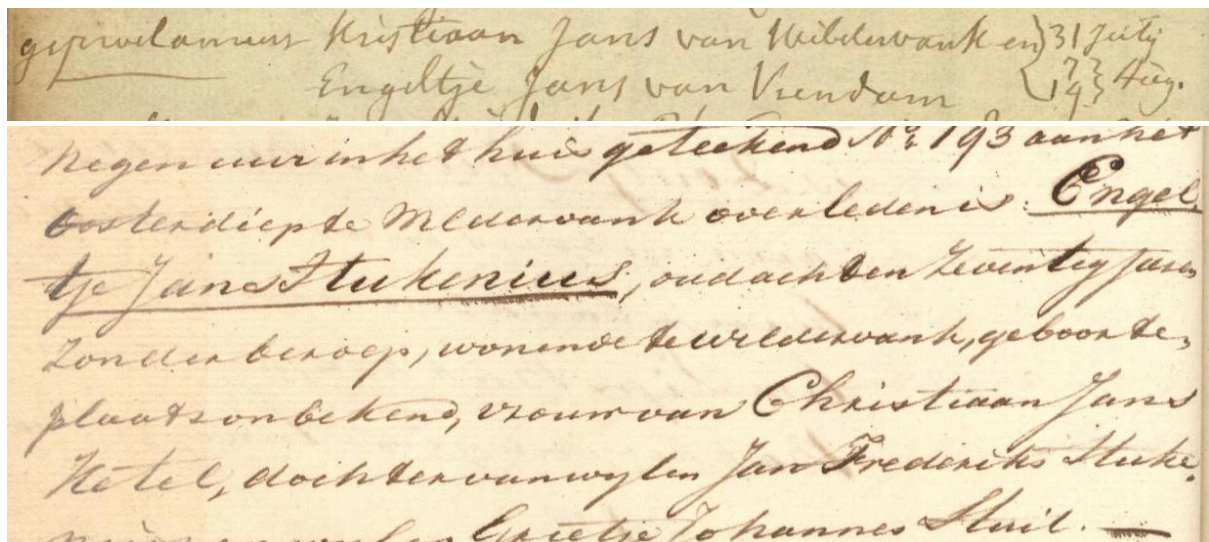 geproclameert Kristiaan Jans van Wildervank en 31 July
Engeltje Jans van Veendam 7 14 Aug.
Negen uur in het huis geteekend No. 193 aan het
Oosterdiep te Wildervank overleden is: Engel,
tje Jans Stukenieus, oud acht en Zeventig Jaren
Zonder beroep, wonende te wildervank, geboorte,
plaats onbekend, vrouw van Christiaan Jans
Ketel, dochter van wylen Jan Frederiks Stuke,
Grietje Johannes Stuil.